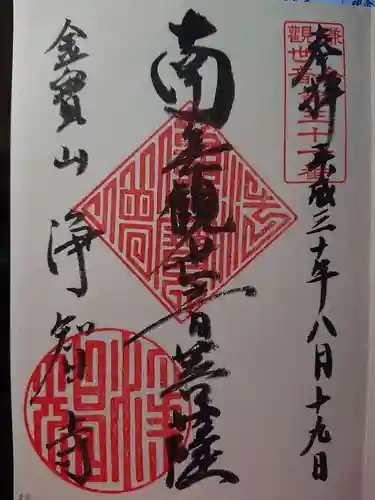 奉拝 平成三十年八月十九日
鎌倉
観世音第三十一番
南無観世音菩薩
金寶山 浄智寺